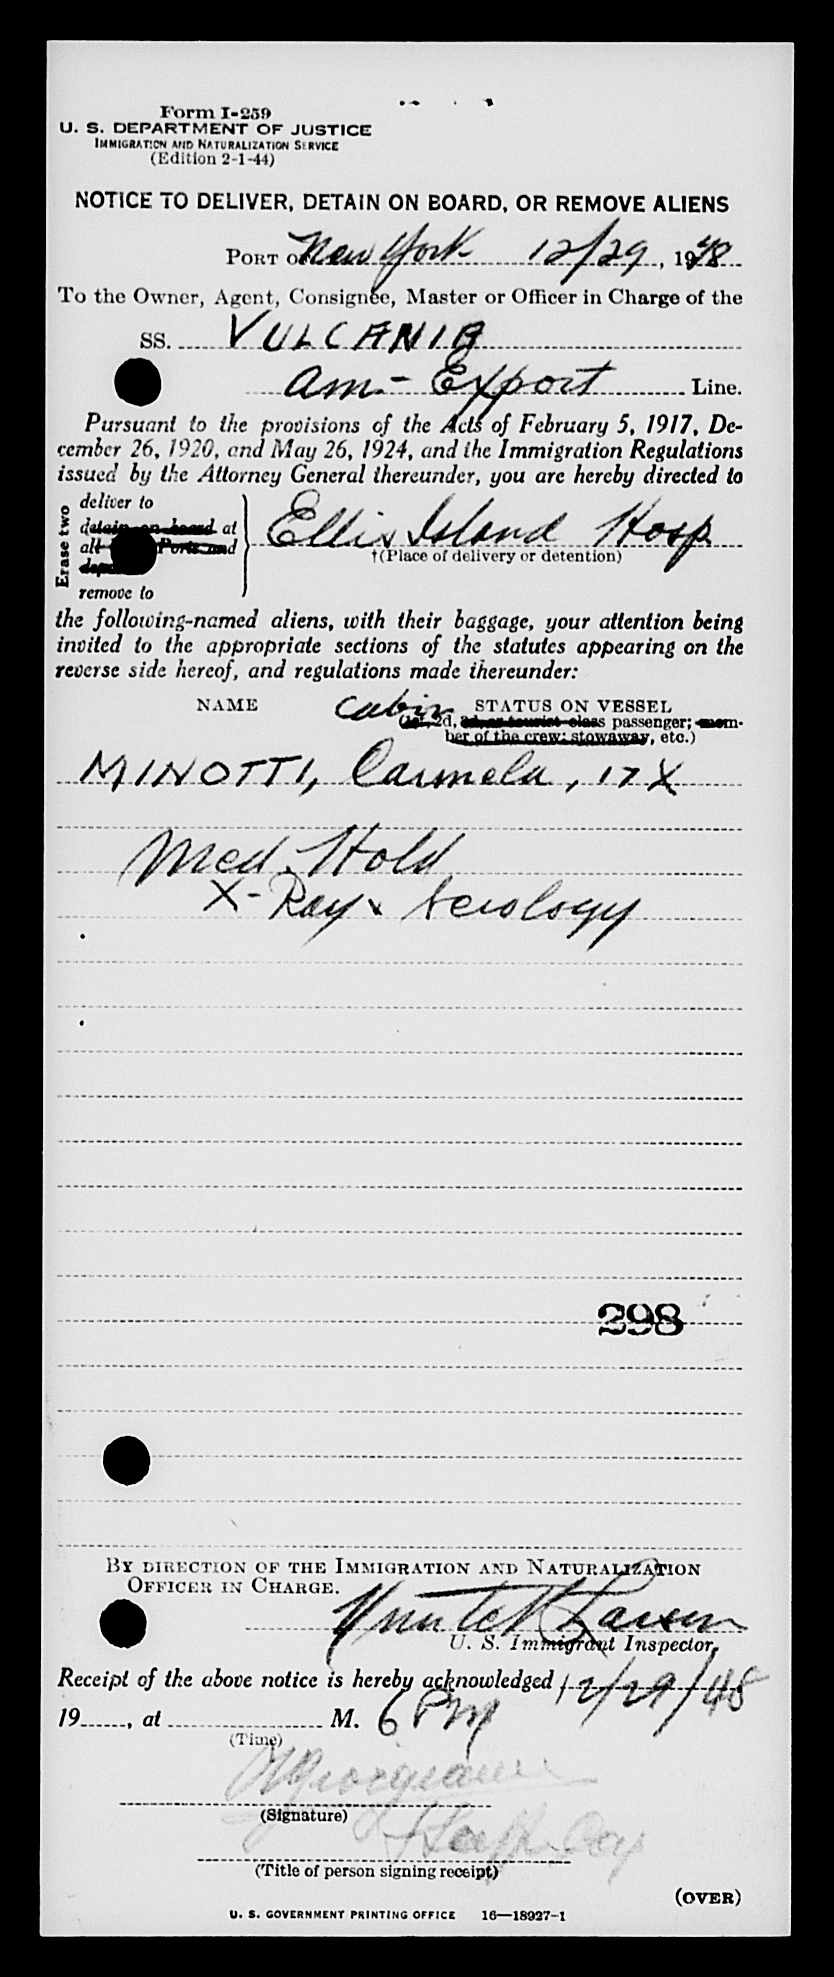 Form I-259
U. S. DEPARTMENT OF JUSTICE
IMMIGRATION AND NATURALIZATION SERVICE
(Edition 2-1-44)
NOTICE TO DELIVER, DETAIN ON BOARD, OR REMOVE ALIENS
PORT OF New York 12/29, 1948
To the Owner, Agent, Consignee, Master or Officer in Charge of the
SS. VULCANIA
Am-Export Line.
Pursuant to the provisions of the Acts of February 5, 1917, De-
cember 26, 1920, and May 26, 1924, and the Immigration Regulations
issued by the Attorney General thereunder, you are hereby directed to
Erase two
deliver to
detain on board at
all Ports and
remove to
Ellis Island Hosp
†(Place of delivery or detention)
the following-named aliens, with their baggage, your attention being
invited to the appropriate sections of the statutes appearing on the
reverse side hereof, and regulations made thereunder:
NAME Cabin STATUS ON VESSEL
(1st, 2d, 3d, or tourist class passenger; mem-
ber of the crew; stowaway, etc.)
MINOTTI, Carmela, 17 X
Med. Hold
X-Ray & Serology
298
BY DIRECTION OF THE IMMIGRATION AND NATURALIZATION
OFFICER IN CHARGE.
Larsen
U. S. Immigrant Inspector.
Receipt of the above notice is hereby acknowledged 12/29/48
19____, at ____ M. 6 PM
(Time)
(Signature)
(Title of person signing receipt)
(OVER)
U. S. GOVERNMENT PRINTING OFFICE 16—18927-1